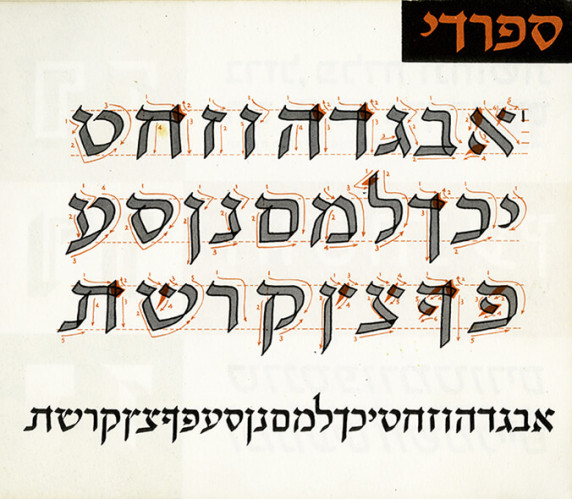 ספרדי
אבגדהוזחט
יכךלמםנןסע
פףצץקרשת
אבגדהוזחטיכךלמםנןסעפףצץקרשת